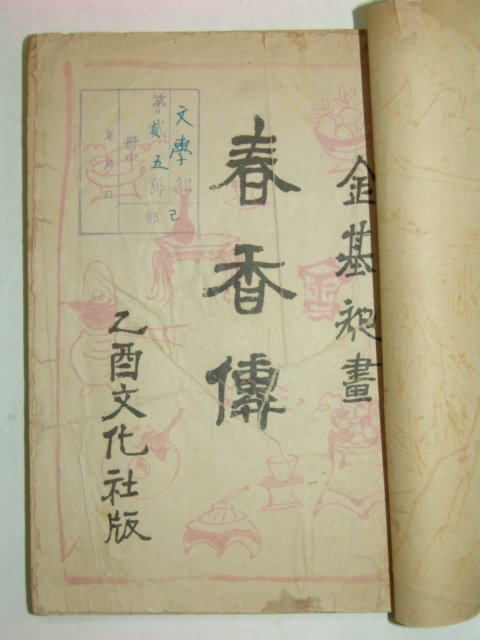 金基昶畫
春香傳
文學部
己
第貳五號
部
冊中
年月日
乙酉文化社版